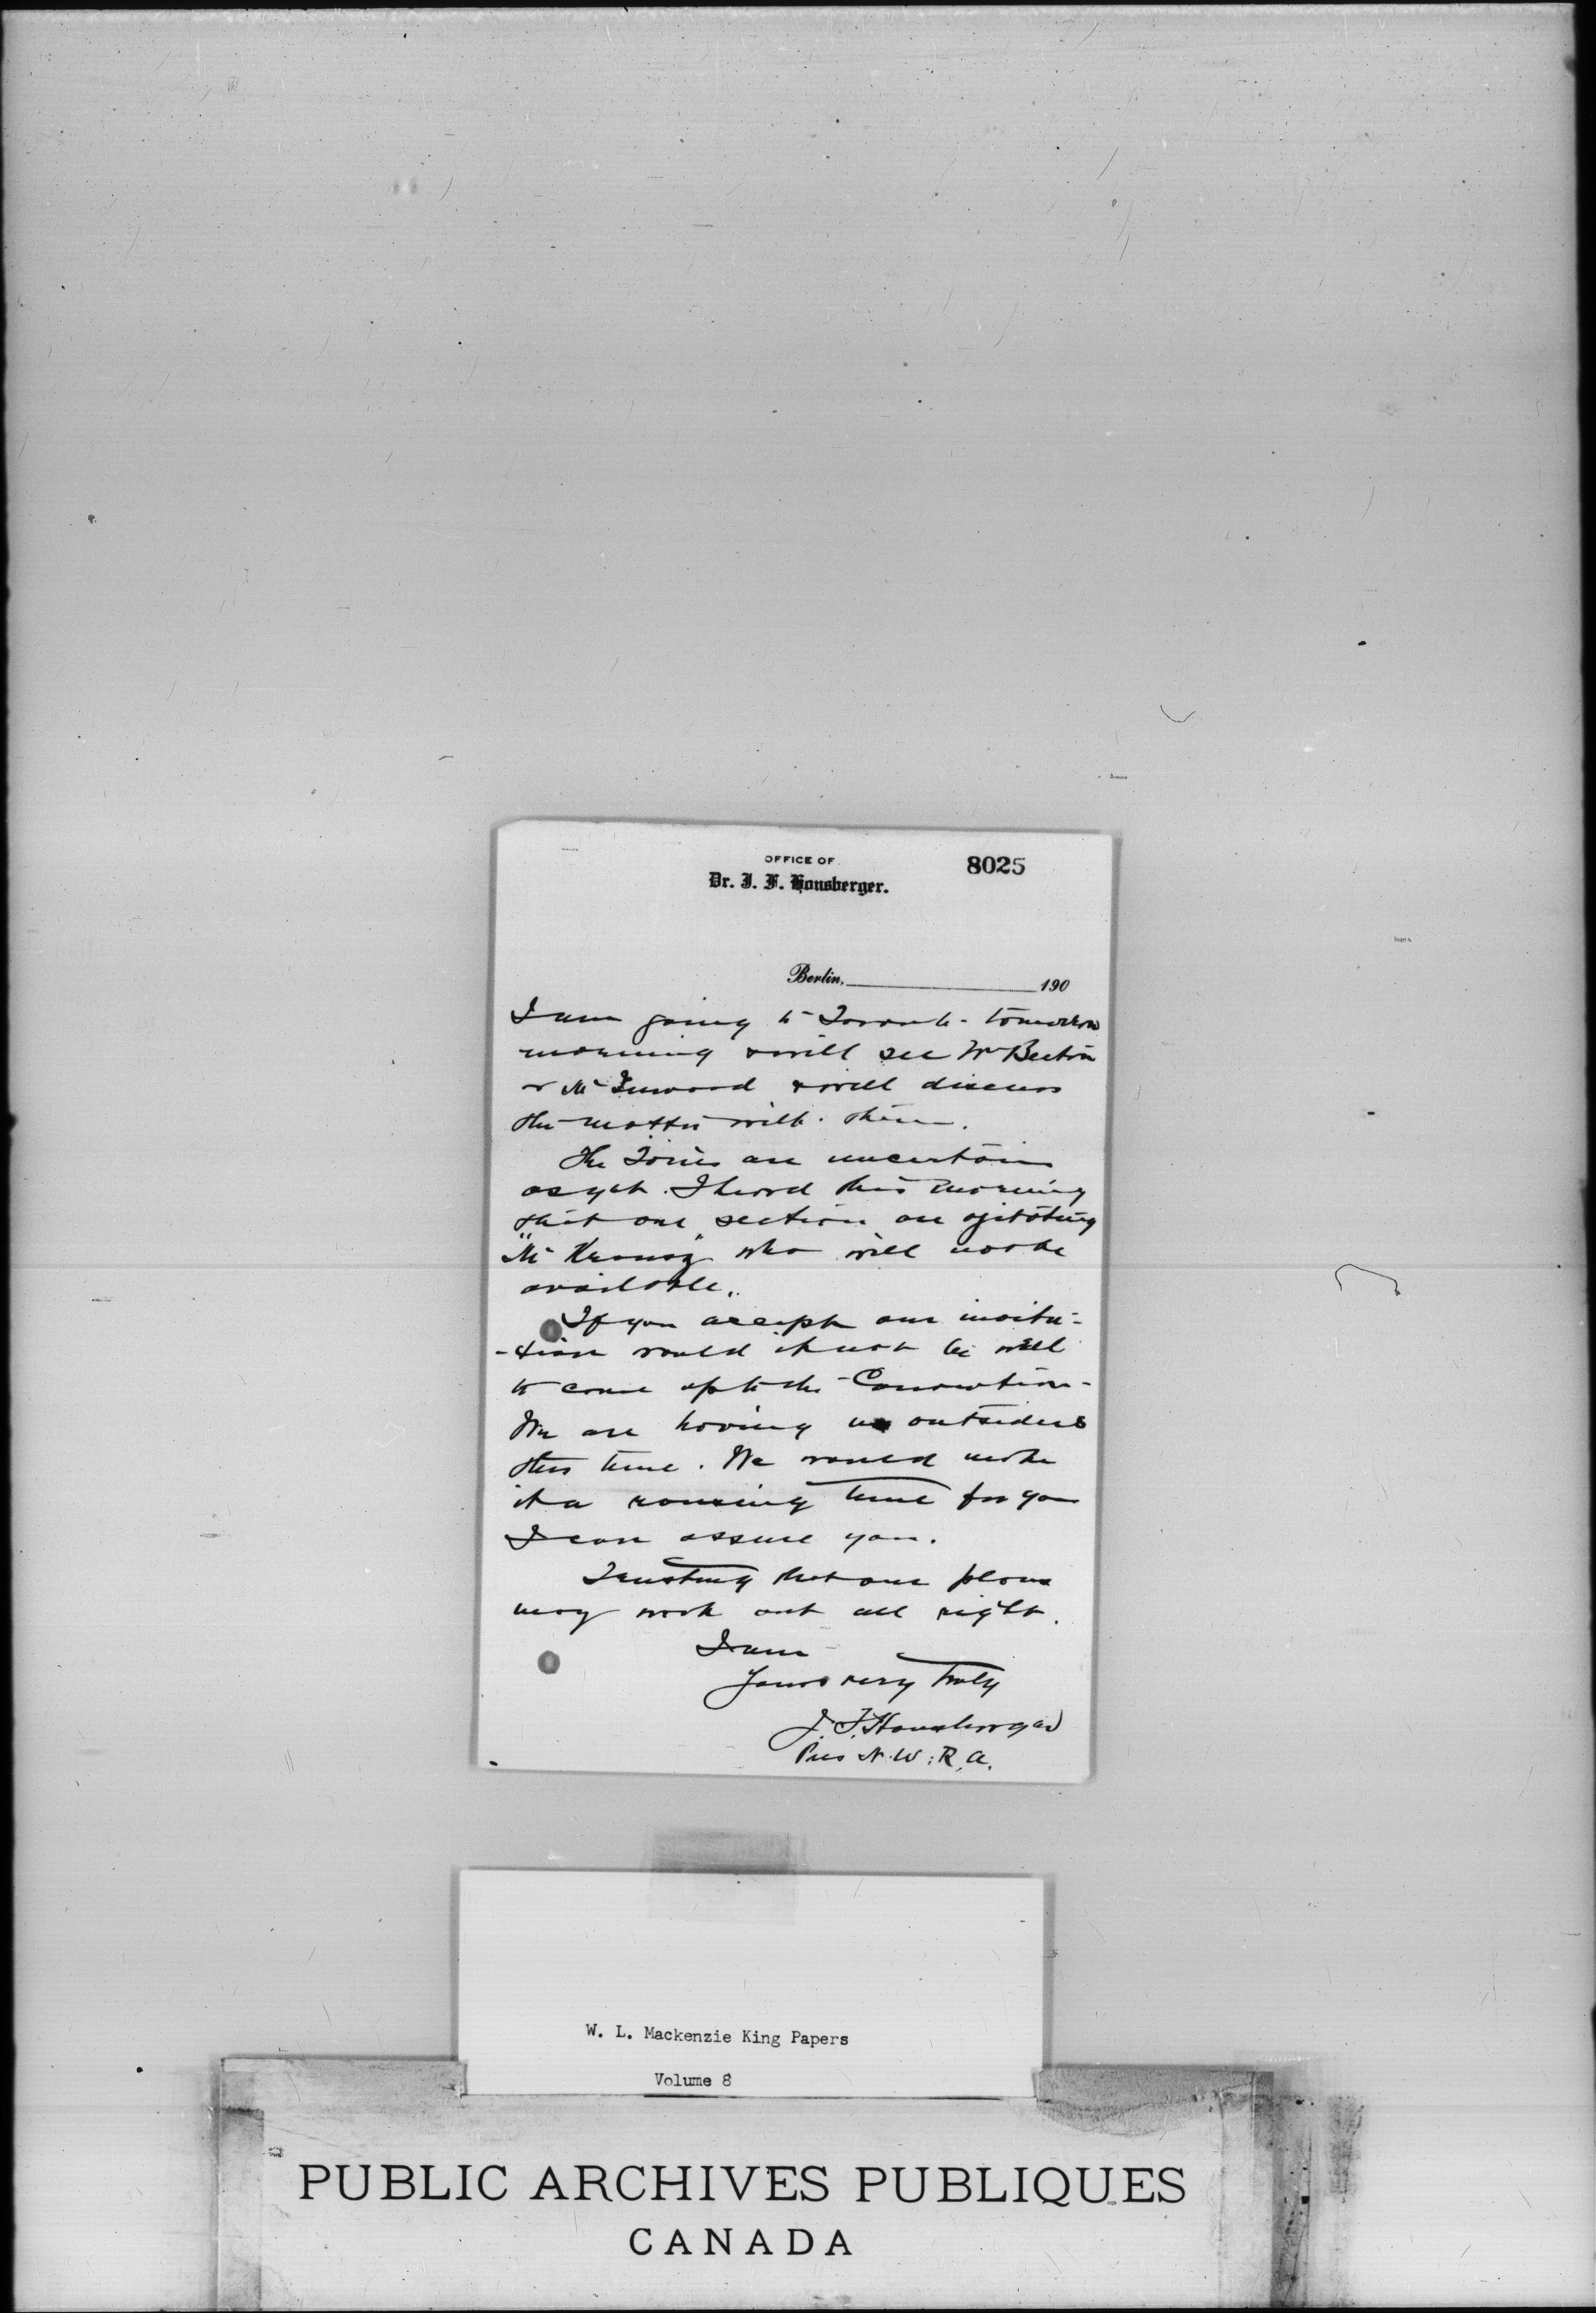 OFFICE OF
8025
Dr. J. F. Honsberger.
Berlin, 190
I am going to Toronto tomorrow
morning & will see Mr
& Mr Inwood & will discuss
the matter with them.
The Tories are uncertain
as yet. I heard this morning
that one section are agitating
"Mr Kranz" who will not be
available.
If you accept our invita-
-tion would it not be well
to come up to the Convention-
We are having no outsiders
this time. We would make
it a rousing time for you
I can assure you.
Trusting that our plans
may work out all right.
I am
Yours very truly
J. F. Honsberger
Pres N. W. R. A.
W. L. Mackenzie King Papers
Volume 8
PUBLIC ARCHIVES PUBLIQUES
CANADA